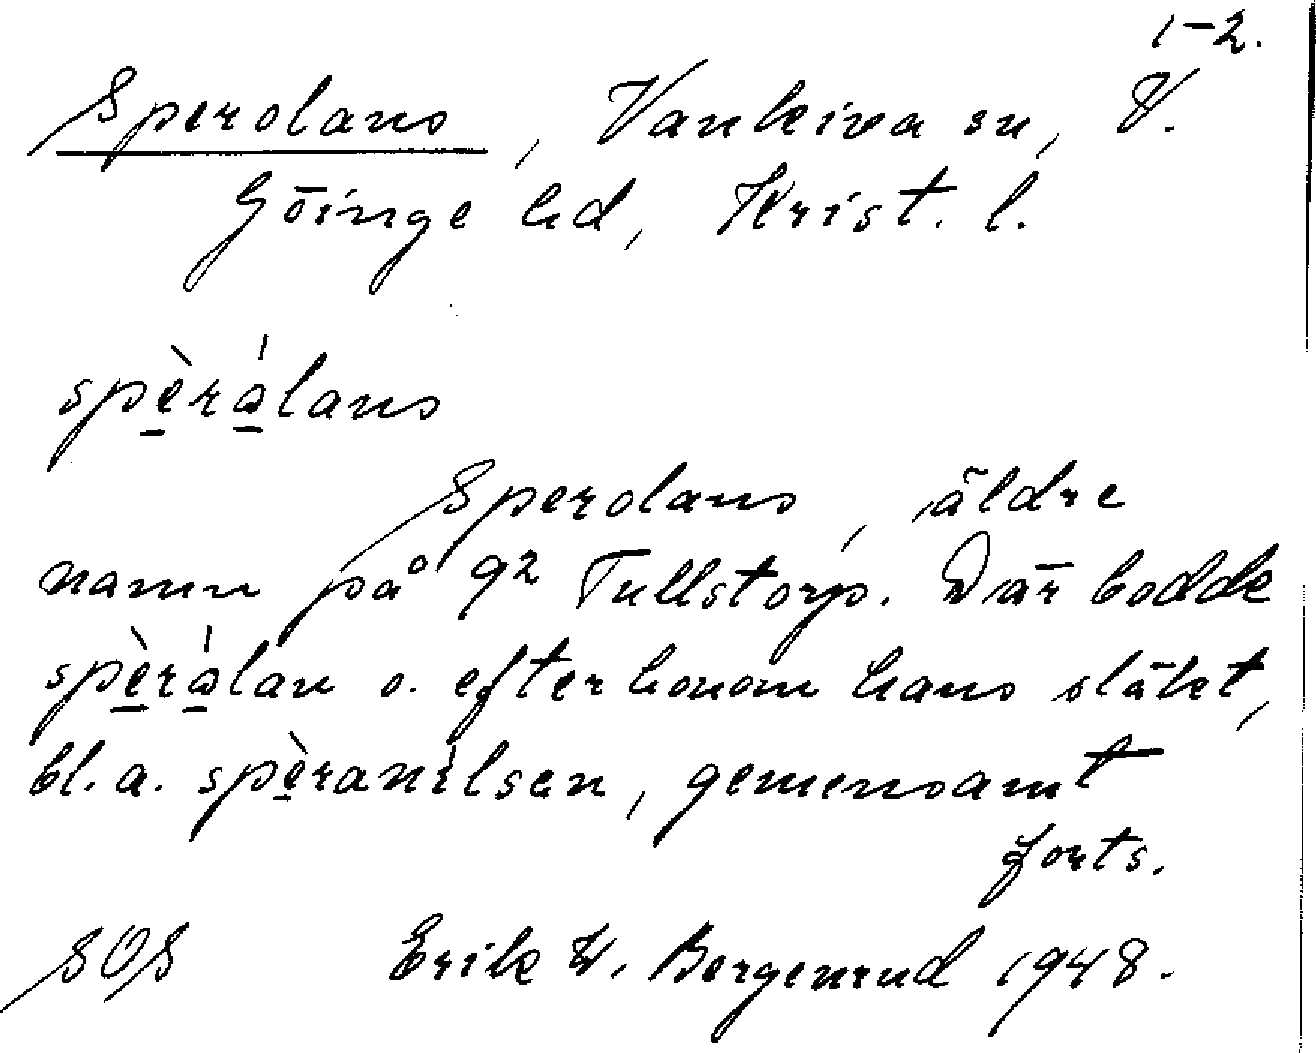 1-2.
Sperolans, Vankiva sn, V.
Göinge hd, Krist. l.
spèrálans
Sperolans, äldre
namn på 92 Tullstorp. Där bodde
spèrálan o. efter honom hans släkt,
bl.a. spèranílsen, gemensamt
forts.
SOS Erik W. Bergenrud 1948.